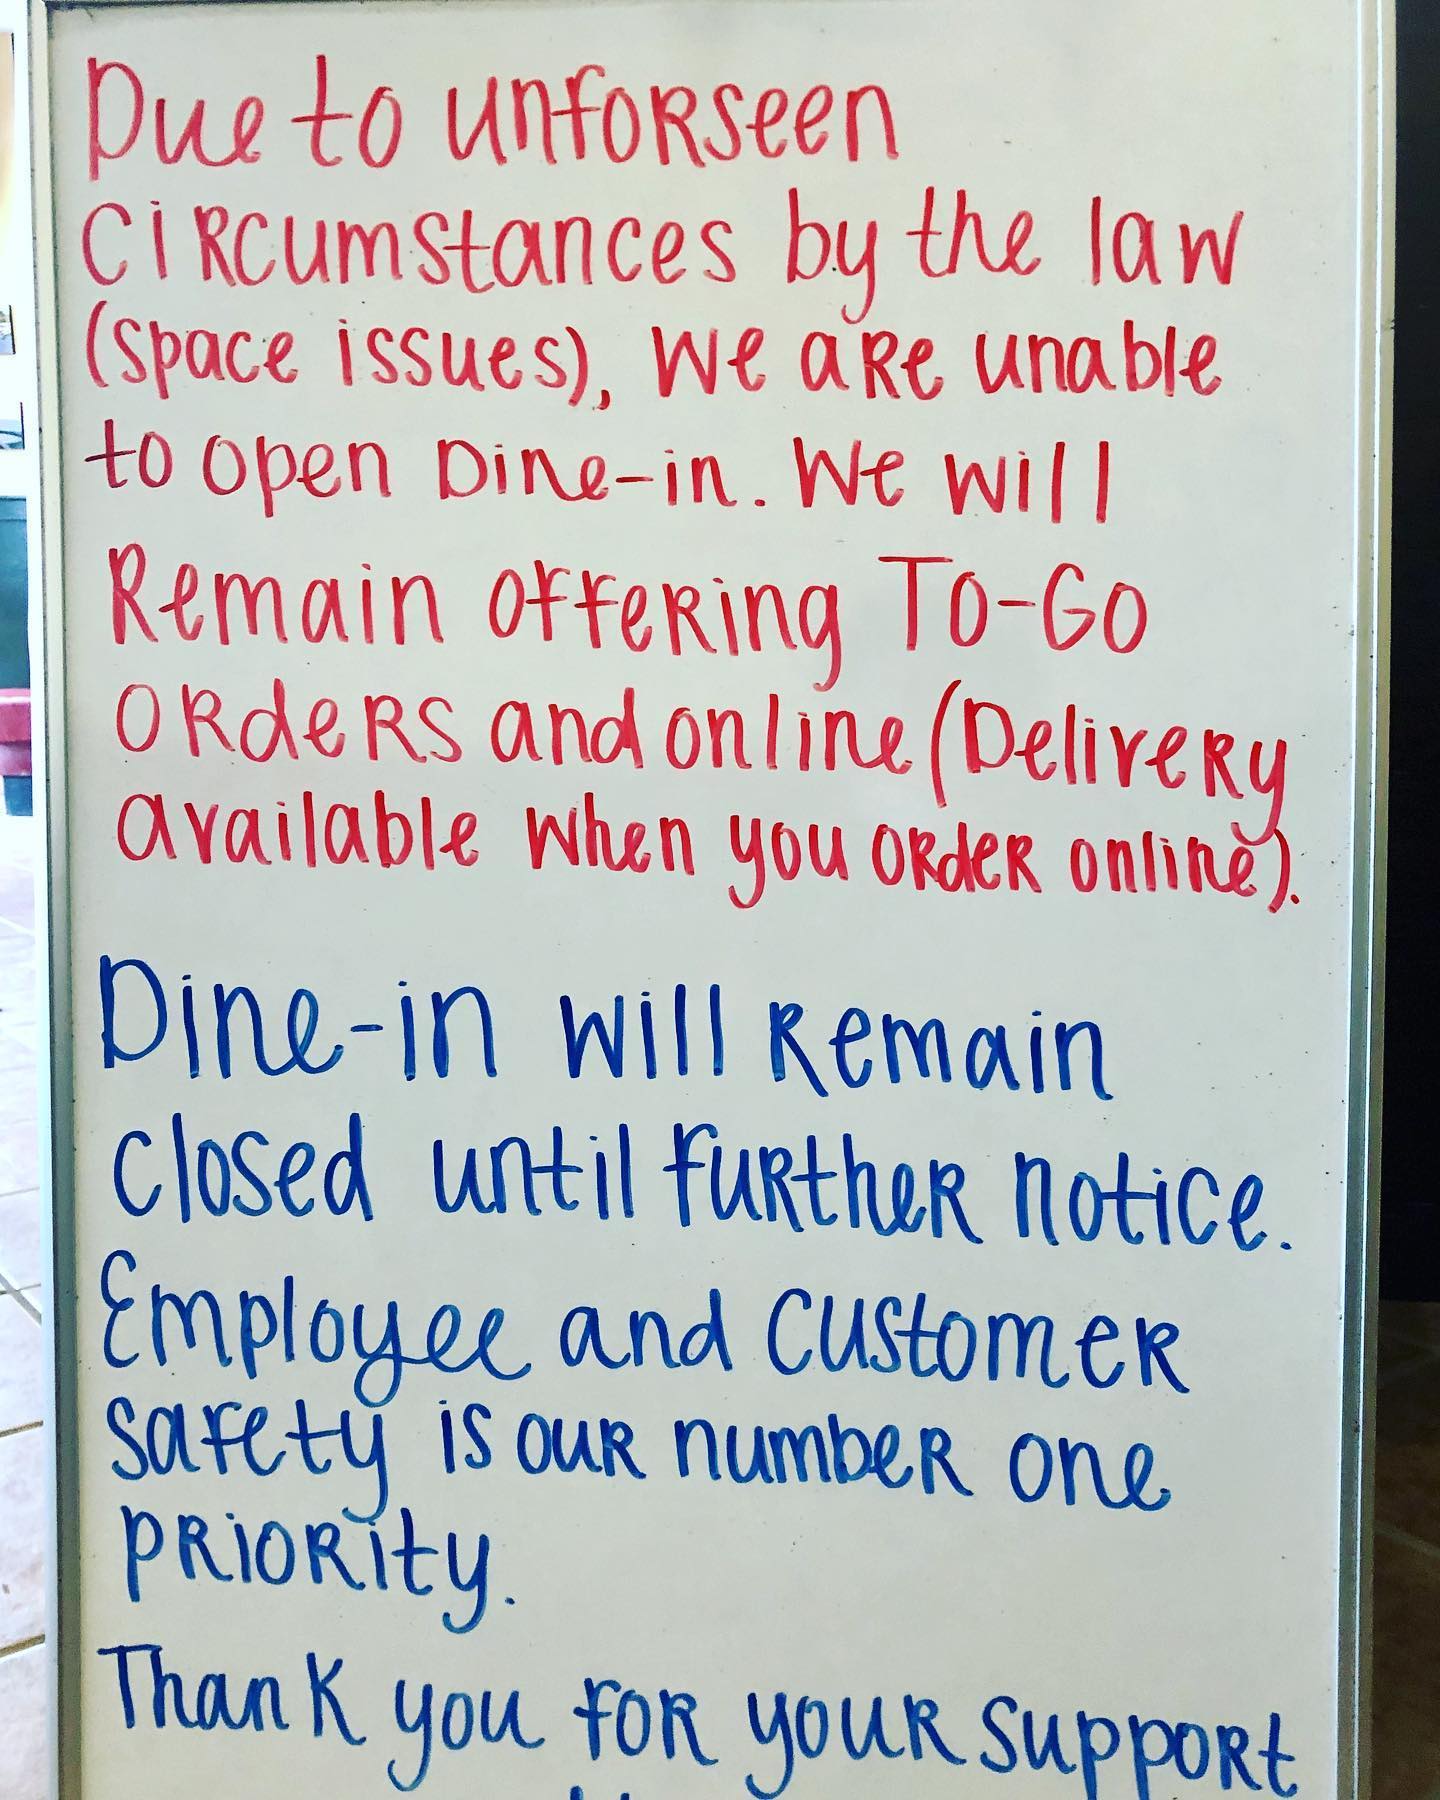 Due to unforseen
circumstances by the law
(space issues), we are unable
to open Dine-in. We will
Remain offering To-Go
orders and online (Delivery
available when you order online).
Dine-in will remain
closed until further notice.
Employee and customer
safety is our number one
priority.
Thank you for your support